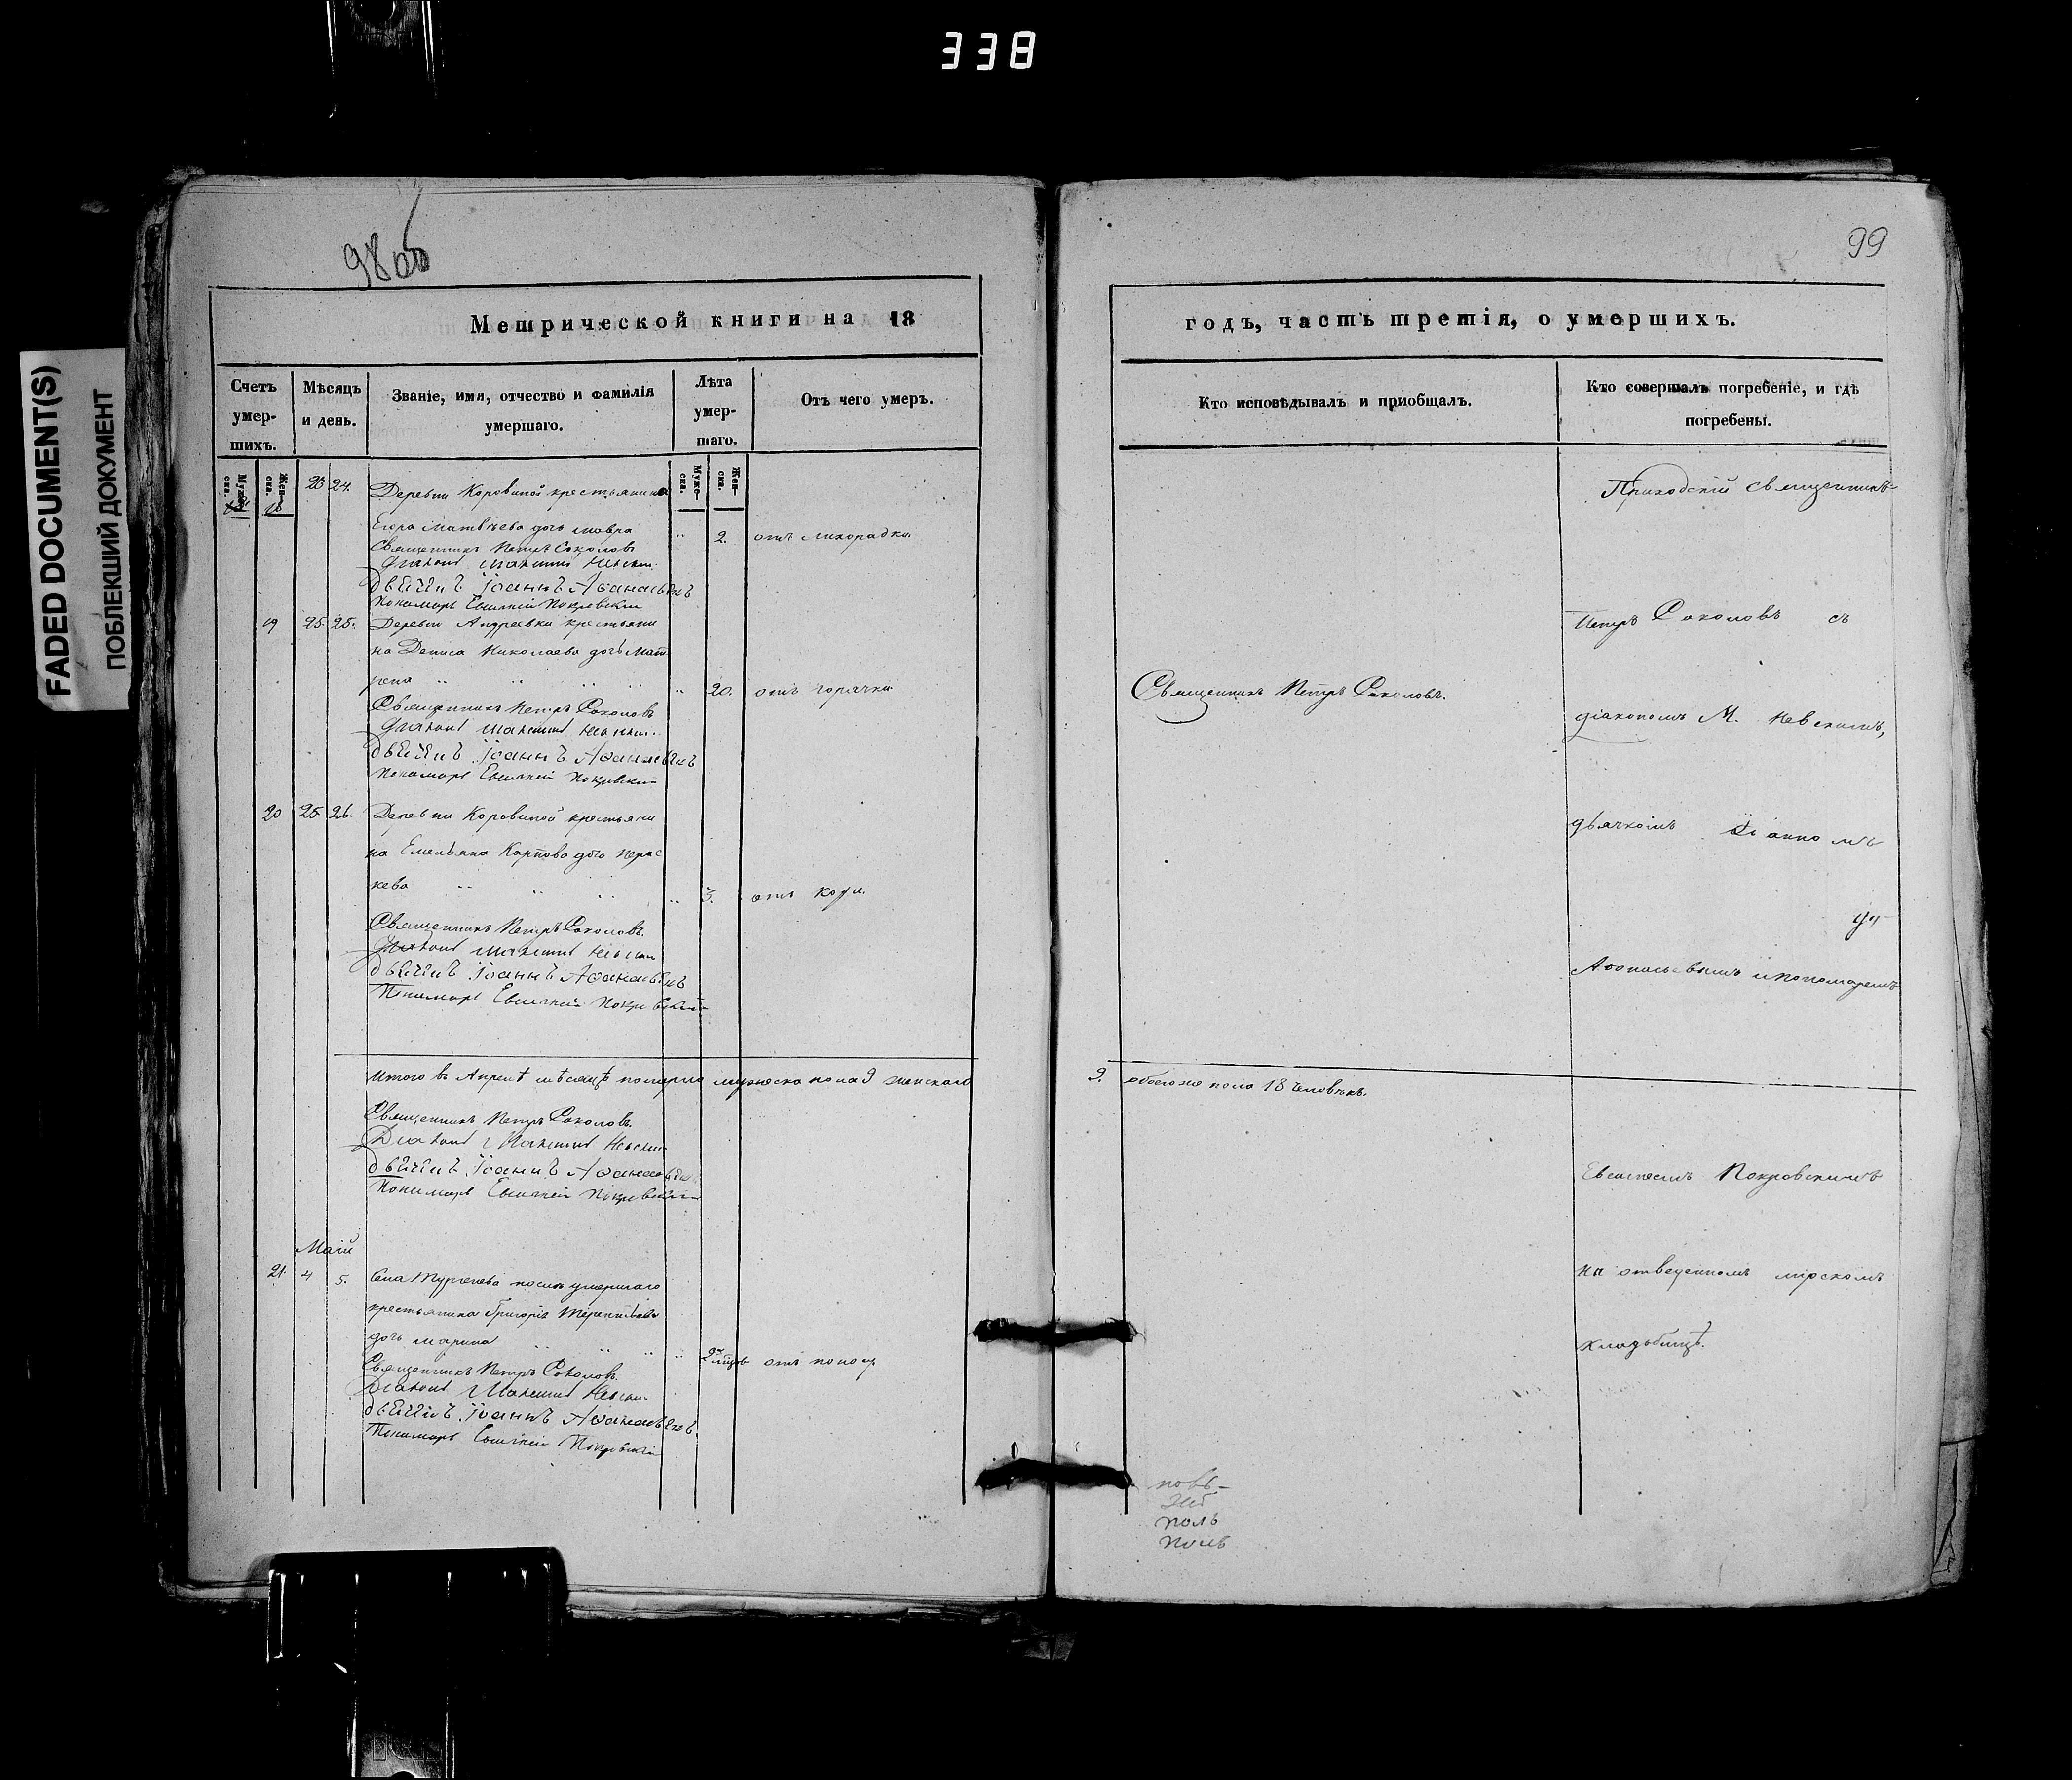 338
FADED DOCUMENT(S)
ПОБЛЕКШИЙ ДОКУМЕНТ
98об
Метрической книги на 18
Счетъ умер-шихъ.
Мѣсяцъ и день.
Званіе, имя, отчество и фамилія умершаго.
Лѣта умер-шаго.
Отъ чего умеръ.
Муже-ска.
Жен-ска.
Муже-ска.
Жен-ска.
18 23 24. Деревни Коровиной крестьянина
Егора Матвѣева дочь Мавра 2. отъ лихорадки.
Священникъ Петръ Соколовъ
Діаконъ Максимъ Невскій
Дьячекъ Іоаннъ Аѳанасьевъ
Пономарь Евсигній Покровскій
19 25. 25. Деревни Андреевки крестьяни
на Дениса Николаева дочь Мат
рена 20. отъ горячки
Священникъ Петръ Соколовъ
Діаконъ Максимъ Невскій.
Дьячекъ Іоаннъ Аѳанасьевъ
Пономарь Евсигній Покровскій
20 25 26. Деревни Коровиной крестьяни
на Емельяна Карпова дочь Парас
кева 3. отъ кори.
Священникъ Петръ Соколовъ.
Діаконъ Максимъ Невскій
Дьячекъ Іоаннъ Аѳанасьевъ
Пономарь Евсигній Покровскій
Итого въ Апрелѣ мѣсяцѣ померло мужеска пола 9 женскаго
Священникъ Петръ Соколовъ.
Діаконъ Максимъ Невскій
Дьячекъ Іоаннъ Аѳанасьевъ
Пономарь Евсигній Покровскій
Маій
21. 4 5. Села Тургенева послѣ умершаго
крестьянина Григорія Терентьева
дочь Марина
отъ поносу
Священникъ Петръ Соколовъ.
Діаконъ Максимъ Невскій
Дьячекъ Іоаннъ Аѳанасьевъ.
Пономарь Евсигній Покровскій
99
годъ, часть третія, о умершихъ.
Кто исповѣдывалъ и приобщалъ.
Кто совершалъ погребеніе, и гдѣ погребены.
Священникъ Петръ Соколовъ.
9. обоего же пола 18 человѣкъ.
Приходскій священникъ
Петръ Соколовъ съ
діакономъ М. Невскимъ,
дьячкомъ Іоанномъ
Аѳонасьевымъ и пономаремъ
Евсигнеемъ Покровскимъ
на отведенномъ мірскомъ
кладбищѣ.